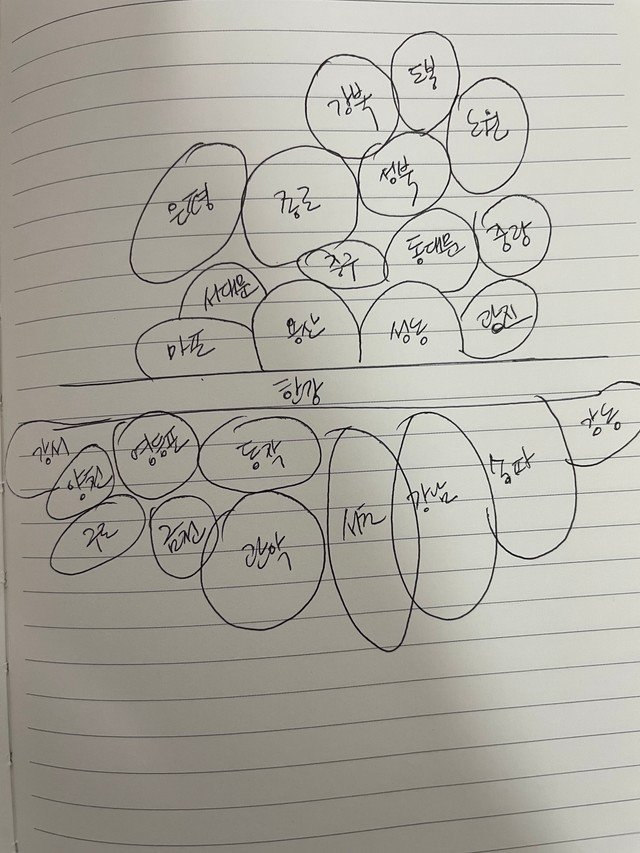 도봉
강북
노원
성북
은평
종로
중랑
동대문
중구
서대문
광진
용산
성동
마포
한강
강동
강서
영등포
동작
양천
송파
강남
서초
구로
금천
관악